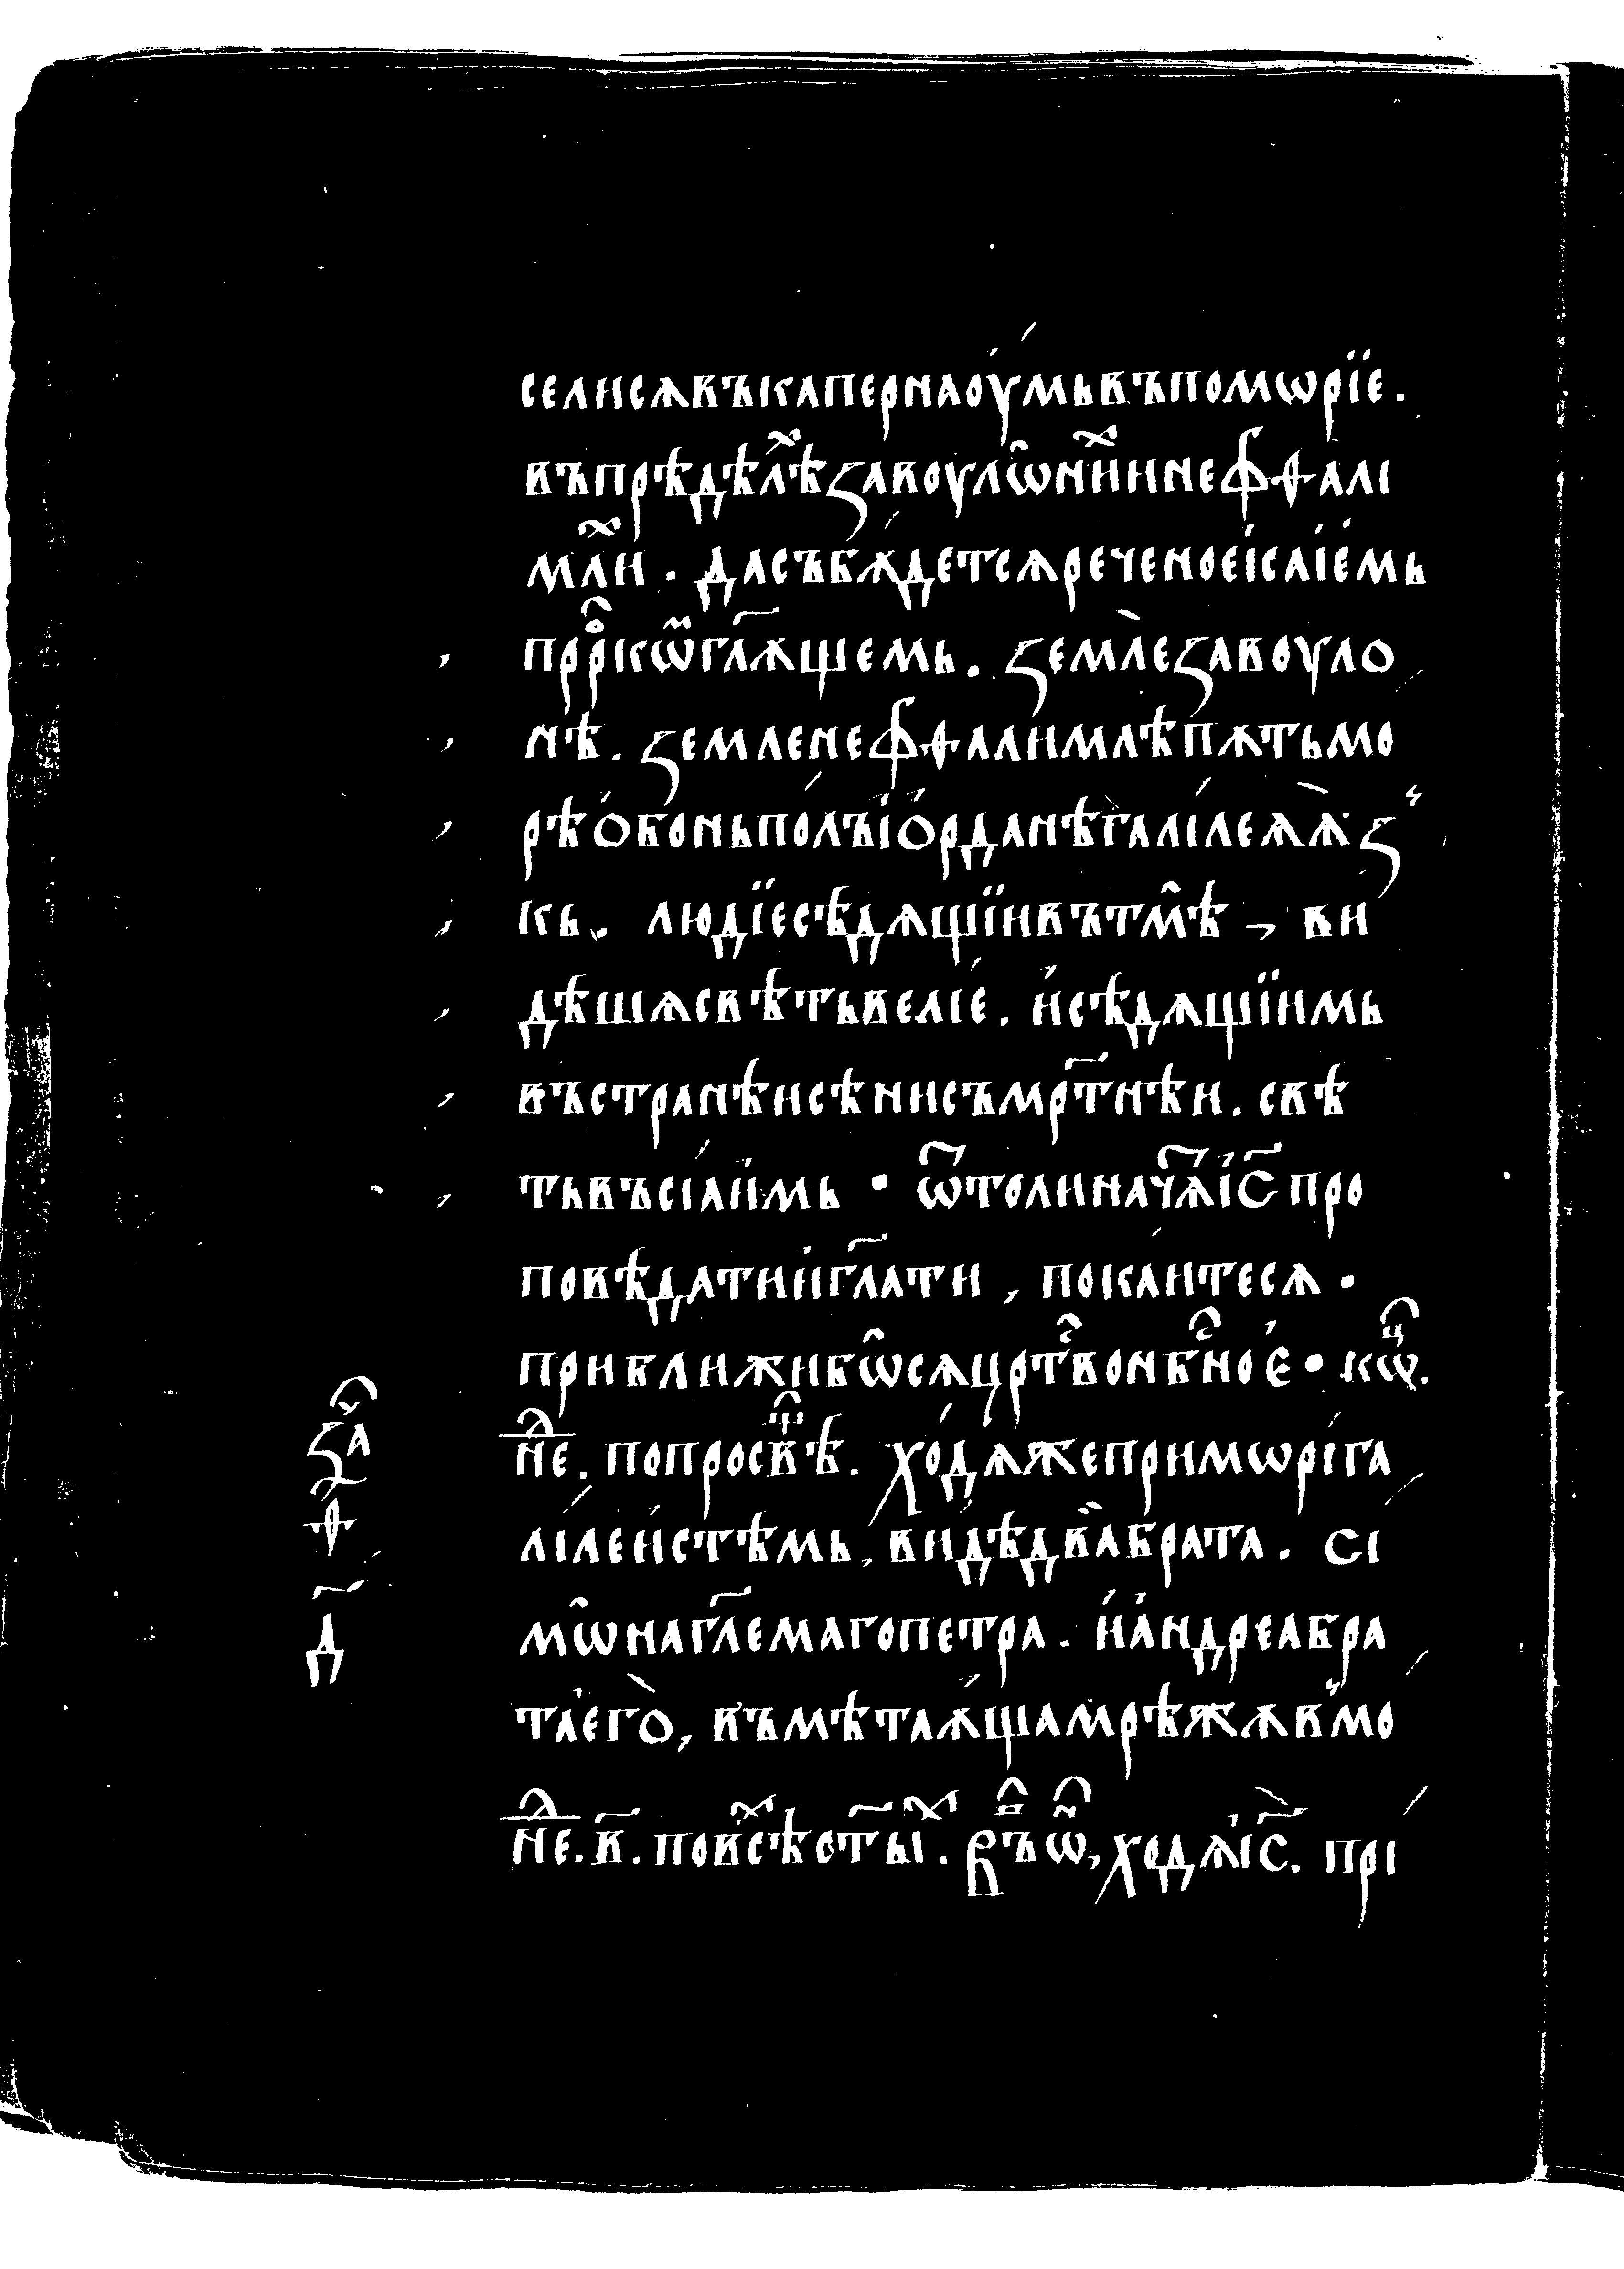 селисѧвъкапернаоу́мьвъпомѡрїе.
въпрѣдѣл҄ѣꙁавоулѡ̑нн҄инеффалі
мл҄и . дасъбѫдетсѧреченоеісаіемь
прⷪ҇ркѡⷨгл҃ѫщемь . ꙁемлѐꙁавоуло
нѣ . ꙁемленеффалимлѣпѫтьмо
рѣо́боньпо́лъіо́рданѣгалі́леѧѧ̀ꙁ
кь . людїесѣдѧщїивътм̑ѣ , ви
дѣшѧсвѣтьвеліе . и҆сѣдѧщїимь
въстранѣисѣнисъмрт҃нѣи . свѣ
тьвъсіаи́мь · ѿтолиначѧ҃т і҆с҃ про
повѣдатии҆гл҃ати , покаитесѧ ·
приближибѡ̑сѧцрⷭ҇твонбⷭ҇ное҆ · кѡⷰ҇ .
нⷧ҇е . попросв҄ѣ . хо́дѧжепримѡріга
ліле́истѣмь , видѣдв̏абрата . сі
мѡ̑нагл҃емагопетра . и҆а҆ндреабра
та҆его̀ , въмѣтаѫ́щамрѣжѫв̾мо
нⷧ҇е . в҃ . пов҄сѣⷯст҃ыⷯ . връⷨѡⷩ , ходѧі҆с҃ . прі
ꙁаⷱ҇
ѳ҃
д҃